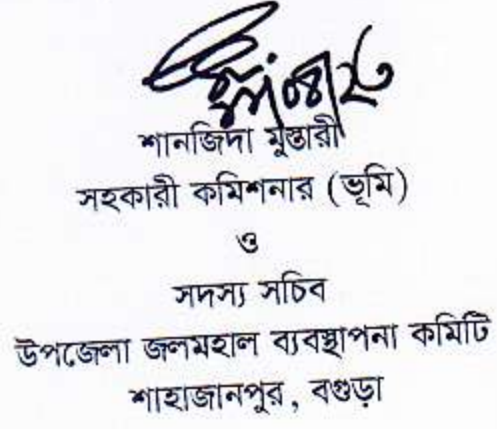 শানজিদা মুস্তারী
সহকারী কমিশনার (ভূমি)
ও
সদস্য সচিব
উপজেলা জলমহাল ব্যবস্থাপনা কমিটি
শাহাজানপুর, বগুড়া